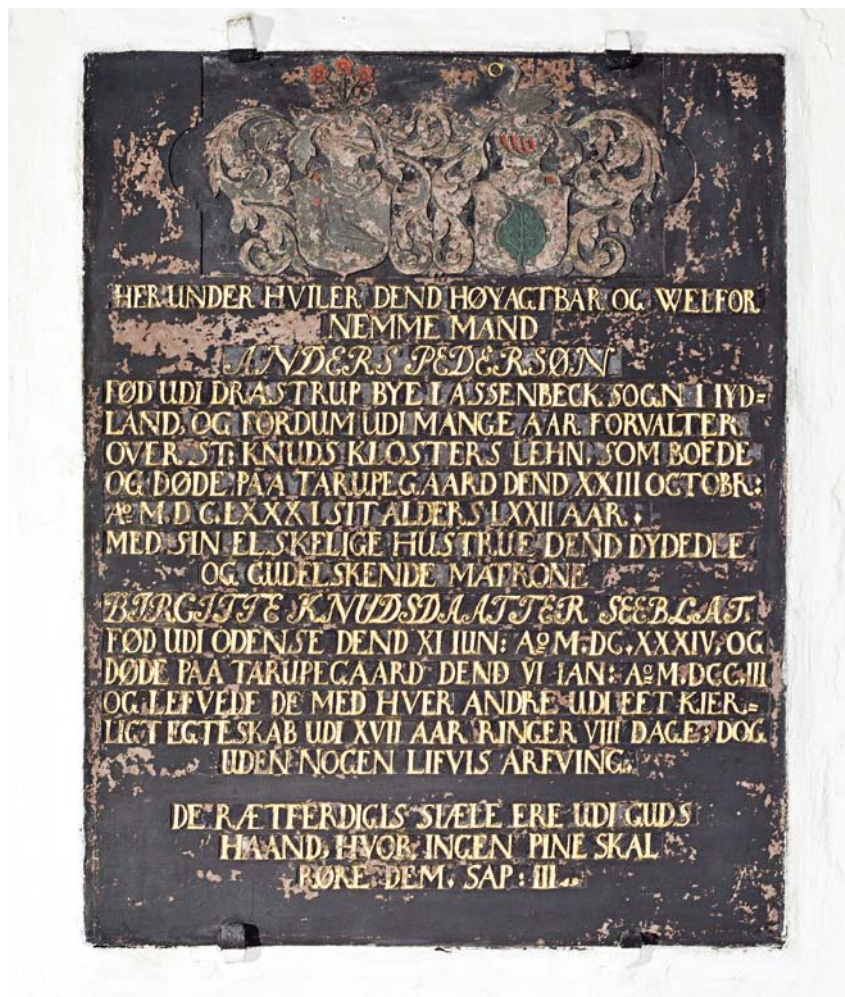 HER UNDER HVILER DEND HØYAGTBAR OG WELFOR
NEMME MAND
ANDERS PEDERSØN
FØD UDI DRASTRUP BYE I ASSENBECK SOGN I IYD=
LAND, OG FORDUM UDI MANGE AAR FORVALTER
OVER ST: KNUDS KLOSTERS LEHN, SOM BOEDE
OG DØDE PAA TARUPEGAARD DEND XXIII OCTOBR:
Aº M.D C.LXXXI SIT ALDERS LXXII AAR.
MED SIN ELSKELIGE HUSTRUE DEND DYDEDLE
OG GUDELSKENDE MATRONE
BIRGITTE KNUDSDAATTER SEEBLAT,
FØD UDI ODENSE DEND XI IUN: Aº M.DC.XXXIV. OG
DØDE PAA TARUPEGAARD DEND VI IAN: Aº M.DCC.III
OG LEFVEDE DE MED HVER ANDRE UDI EET KIER=
LIGT EGTESKAB UDI XVII AAR RINGER VIII DAGE; DOG
UDEN NOGEN LIFVIS ARFVING.
DE RÆTFERDIGIS SIÆLE ERE UDI GUDS
HAAND, HVOR INGEN PINE SKAL
RØRE DEM. SAP: III..